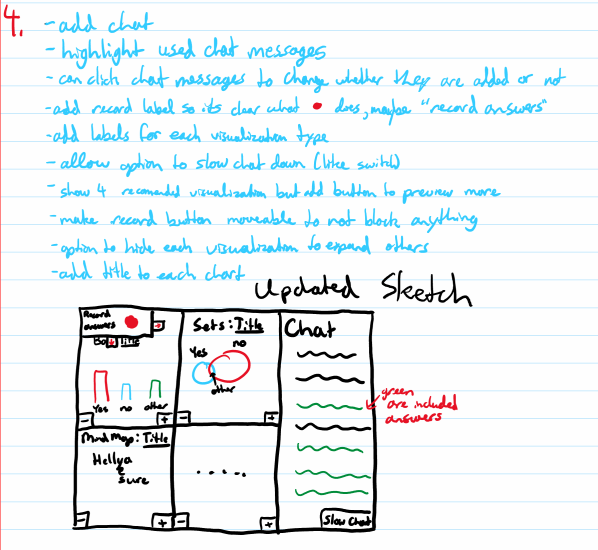 4.
- add chat
- highlight used chat messages
- can click chat messages to change whether they are added or not
- add record label so its clear what ● does, maybe "record answers"
- add labels for each visualization type
- allow option to slow chat down (like switch)
- show 4 recomended visualization but add button to preview more
- make record button moveable to not block anything
- option to hide each visualization to expand others
- add title to each chart
Updated Sketch
Record
answers
Title
Yes no other
- +
Sets: Title
Yes no
other
- +
Mind Map: Title
Hellya
sure
- +
.....
- +
Chat
green
are included
answers
Slow Chat